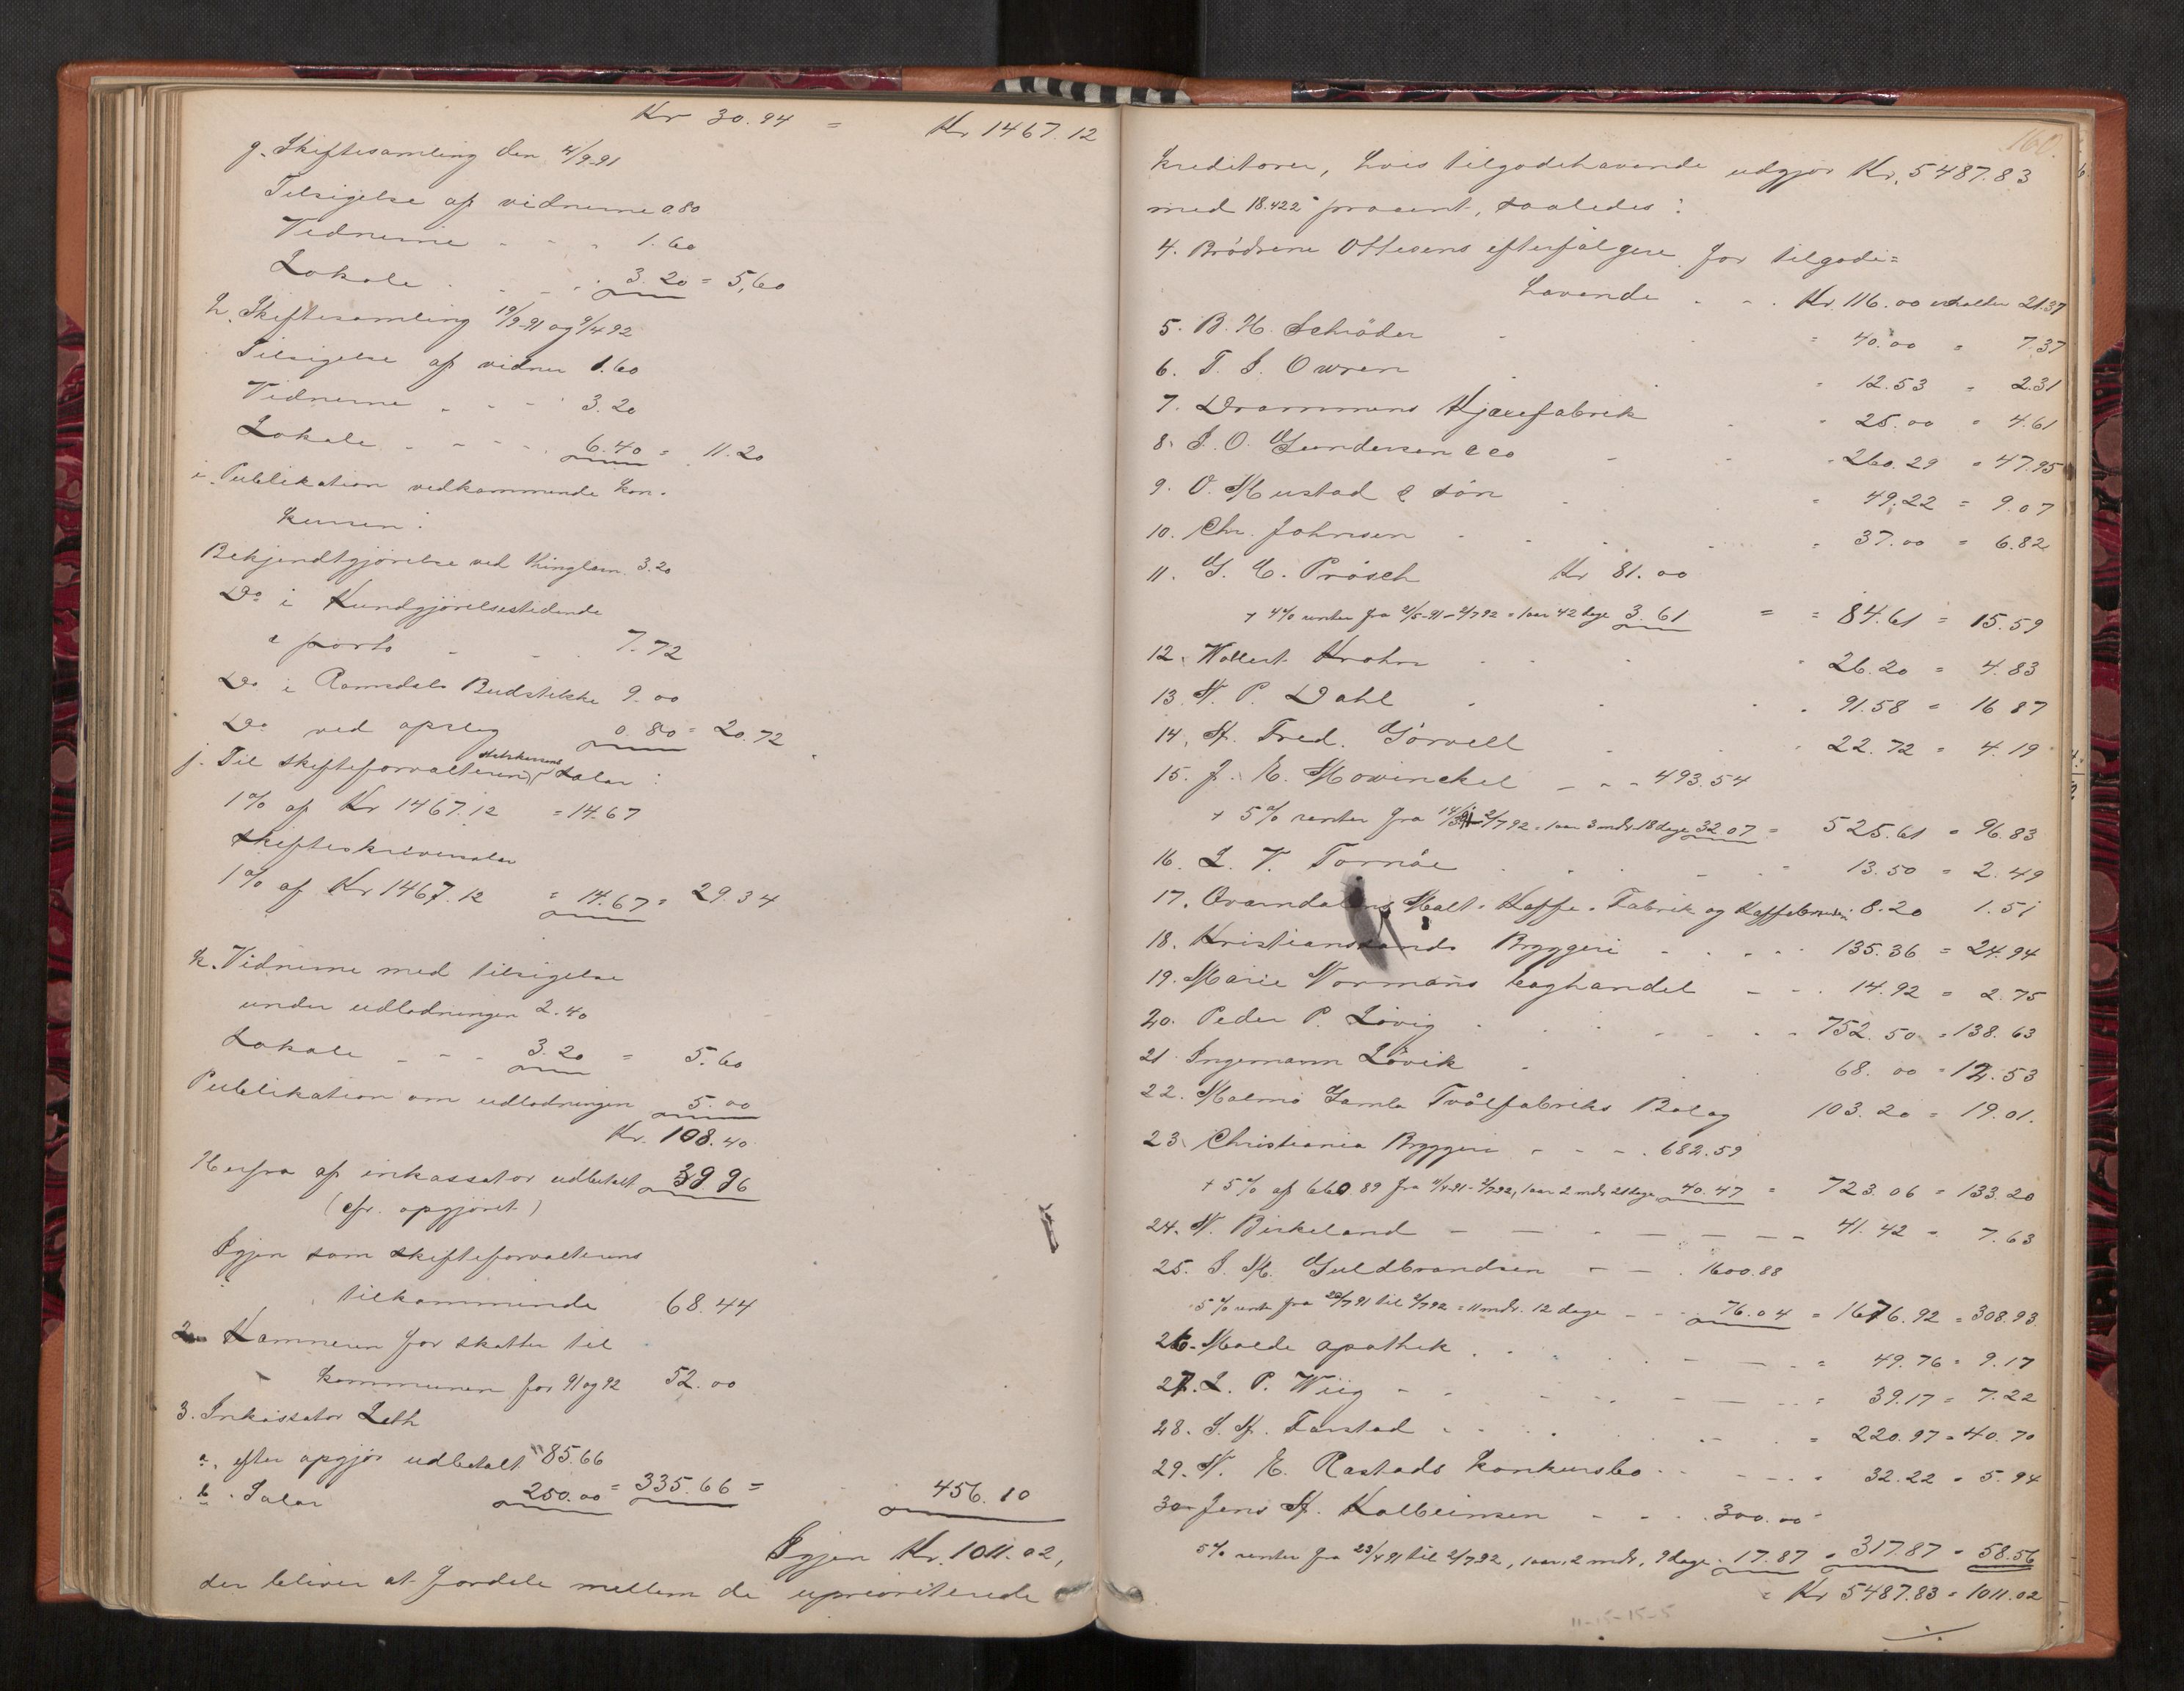 Kr 30.94 = Kr 1467.12
g. Skiftesamling den 4/9-91
Tilsigelse af vidnerne 0.80
Vidnerne - - - 1.60
Lokale - - - 3.20 = 5,60
h. Skiftesamling 19/9-91 og 9/4 92
Tilsigelse af vidner 1.60
Vidnerne - - - 3.20
Lokale - - - - 6.40 = 11.20
i. Publikation vedkommende kon-
kursen:
Bekjendtgjörelse ved Ringlem 3.20
Do i Kundgjörelsestidende
& porto - - 7.72
Do i Romsdals Budstikke 9.00
Do ved opslag 0.80 = 20.72
j. Til skifteforvalteren salær:
1% af Kr 1467.12 = 14.67
skifteskriversalær
1% af Kr 1467.12 = 14.67 = 29.34
k. Vidnerne med tilsigelse
under udlodningen 2.40
Lokale - - - 3.20 = 5.60
Publikation om udlodningen 5.00
Kr. 108.40
Herfra af inkassator udbetalt 39.96
(cfr. opgjöret)
Igjen som skifteforvalterens
tilkommende 68.44
2. Kæmneren for skatter til
kommunen for 91 og 92 52.00
3. Inkassator Leth
a. efter opgjör udbetalt 85.66
b. Salær 250.00 = 335.66 = 456.10
Igjen Kr. 1011.02,
der bliver at fordele mellem de uprioriterede
160.
kreditorer, hvis tilgodehavende udgjör Kr. 5487.83
med 18.422 procent, saaledes:
4. Brödrene Ottesens efterfölgere for tilgode=
havende - - . Kr. 116.00 erholder 21.37
5. B. H. Schröder - - = 40.00 = 7.37
6. T. S. Owren = 12.53 = 2.31
7. Drammens Kjæxfabrik - 25.00 = 4.61
8. S. O. Gundersen & co - - 260.29 = 47.95
9. O. Mustad & sön - = 49.22 = 9.07
10. Chr. Johnsen - - - = 37.00 = 6.82
11. G. C. Prösch Kr 81.00
+ 4% renter fra 21/5-91 - 2/7 92 = 1 aar 42 dage 3.61 = = 84.61 = 15.59
12. Wollert Krohn - - - 26.20 = 4.83
13. N. P. Dahl - - - 91.58 = 16 87
14. M. Fred. Görvell - - 22.72 = 4.19
15. J. E. Mowinckel - - - 493.54
+ 5% renter fra 2/7 92 = 1 aar 3 mdr. 18 dage 32.07 = 525.61 = 96.83
16. L. V. Tornöe - - - 13.50 = 2.49
17. Ovarndalens Malt-Kaffe-Fabrik og 8.20 1.51
18. Kristianssands Bryggeri - - - - 135.36 = 24.94
19. Marie Normans boghandel - - - 14.92 = 2.75
20. Peder P. Lövig - - - - 752.50 = 138.63
21 Ingemann Lövik - 68.00 = 12.53
22. Malmö Gamla Tvålfabriks Bolag 103.20 = 19.01.
23. Christiania Bryggeri - - - . 682.59
+ 5% af 660.89 fra 11/4 91 - 2/7 92, 1 aar 2 mdr 21 dage 40.47 = 723.06 = 133.20
24. N. Birkeland - - - - - - 41.42 = 7.63
25. S. M. Guldbrandsen - - . 1600.88
5% rente fra 20/7 91 til 2/7 92 = 11 mdr. 12 dage - - 76.04 = 1676.92 = 308.93
26. Molde apothek - - - - = 49.76 = 9.17
27. L. P. Wiig - - - - - = 39.17 = 7.22
28. S. M. Farstad - - - - = 220.97 = 40.70
29. N. E. Rastads konkursbo - - - - 32.22 = 5.94
30 Jens M. Kolbeinsen - - - 300.00
5% renter fra 23/4 91 til 2/7 92, 1 aar, 2 mdr, 9 dage 17.87 = 317.87 = 58.56
= Kr 5487.83 = 1011.02